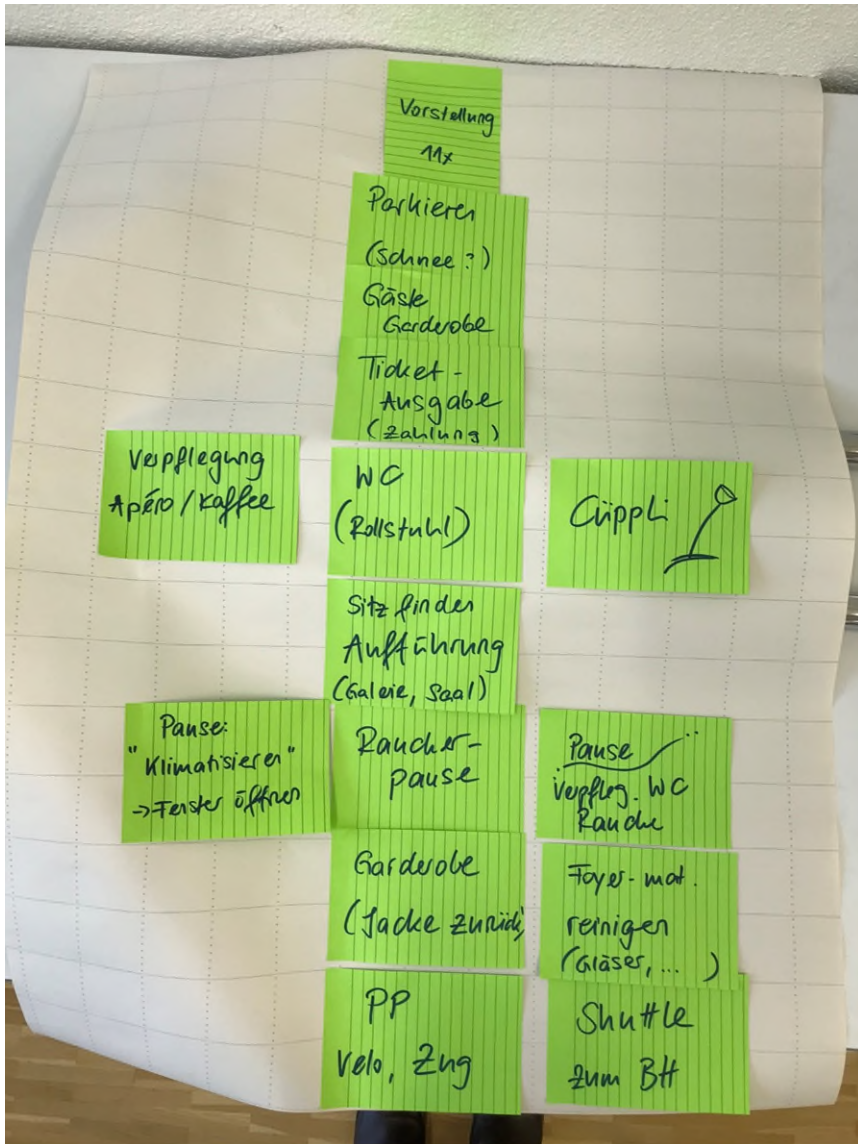 Vorstellung
11x
Parkieren
(Schnee?)
Gäste
Garderobe
Ticket-
Ausgabe
(Zahlung)
Verpflegung
Apéro/Kaffee
WC
(Rollstuhl)
Cüppli
Sitz finden
Aufführung
(Galerie, Saal)
Pause:
"Klimatisieren"
→Fenster öffnen
Raucher-
pause
Pause
Verpfleg. WC
Rauche
Garderobe
(Jacke zurück)
Foyer-mat.
reinigen
(Gläser, ... )
PP
Velo, Zug
Shuttle
zum BH